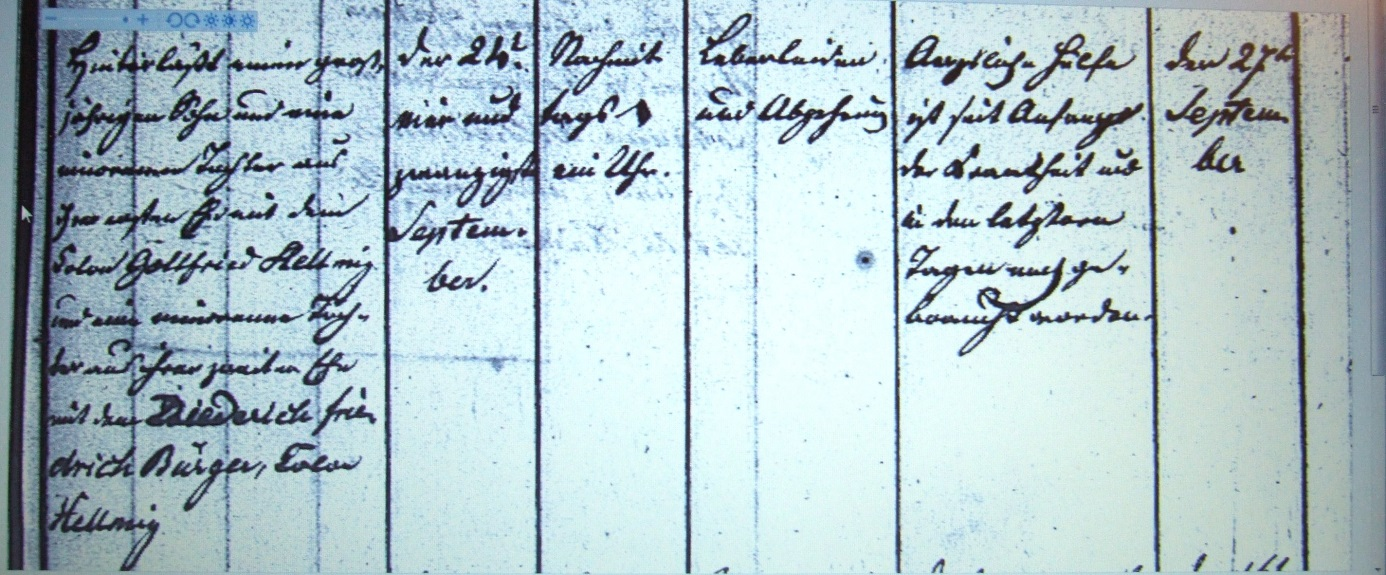 Hinterläßt einen groß-
jährigen Sohn und eine
minorenne Tochter aus
ihrer ersten Ehe mit dem
Colon Gottfried Hellmig
und eine minorenne Toch-
ter aus ihrer zweiten Ehe
mit dem Diederich Frie-
drich Bürger, Colon
Hellmig
der 24t.
vier und
zwanzigste
Septem-
ber.
Nachmit
tags
ein Uhr.
Leberleiden
und Abzehrung
Aerztliche Hülfe
ist seit Anfangs
der Krankheit und
in den letztern
Tagen noch ge-
braucht worden.
den 27t
Septem
ber